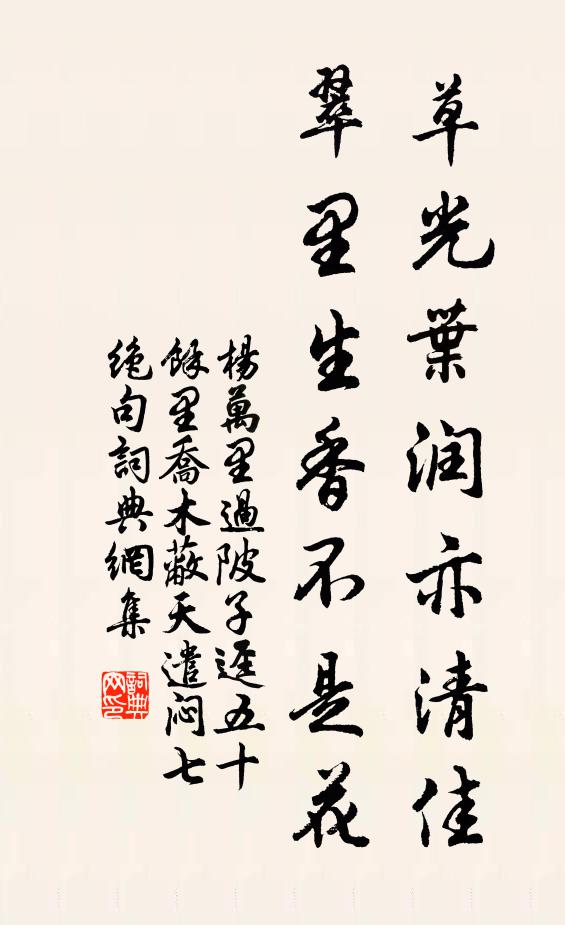 草光葉润亦清佳
翠里生香不是花
楊萬里過陂子遥五十
餘里喬木蔽天遣闷七
絶句詞典網集
詞典
网印